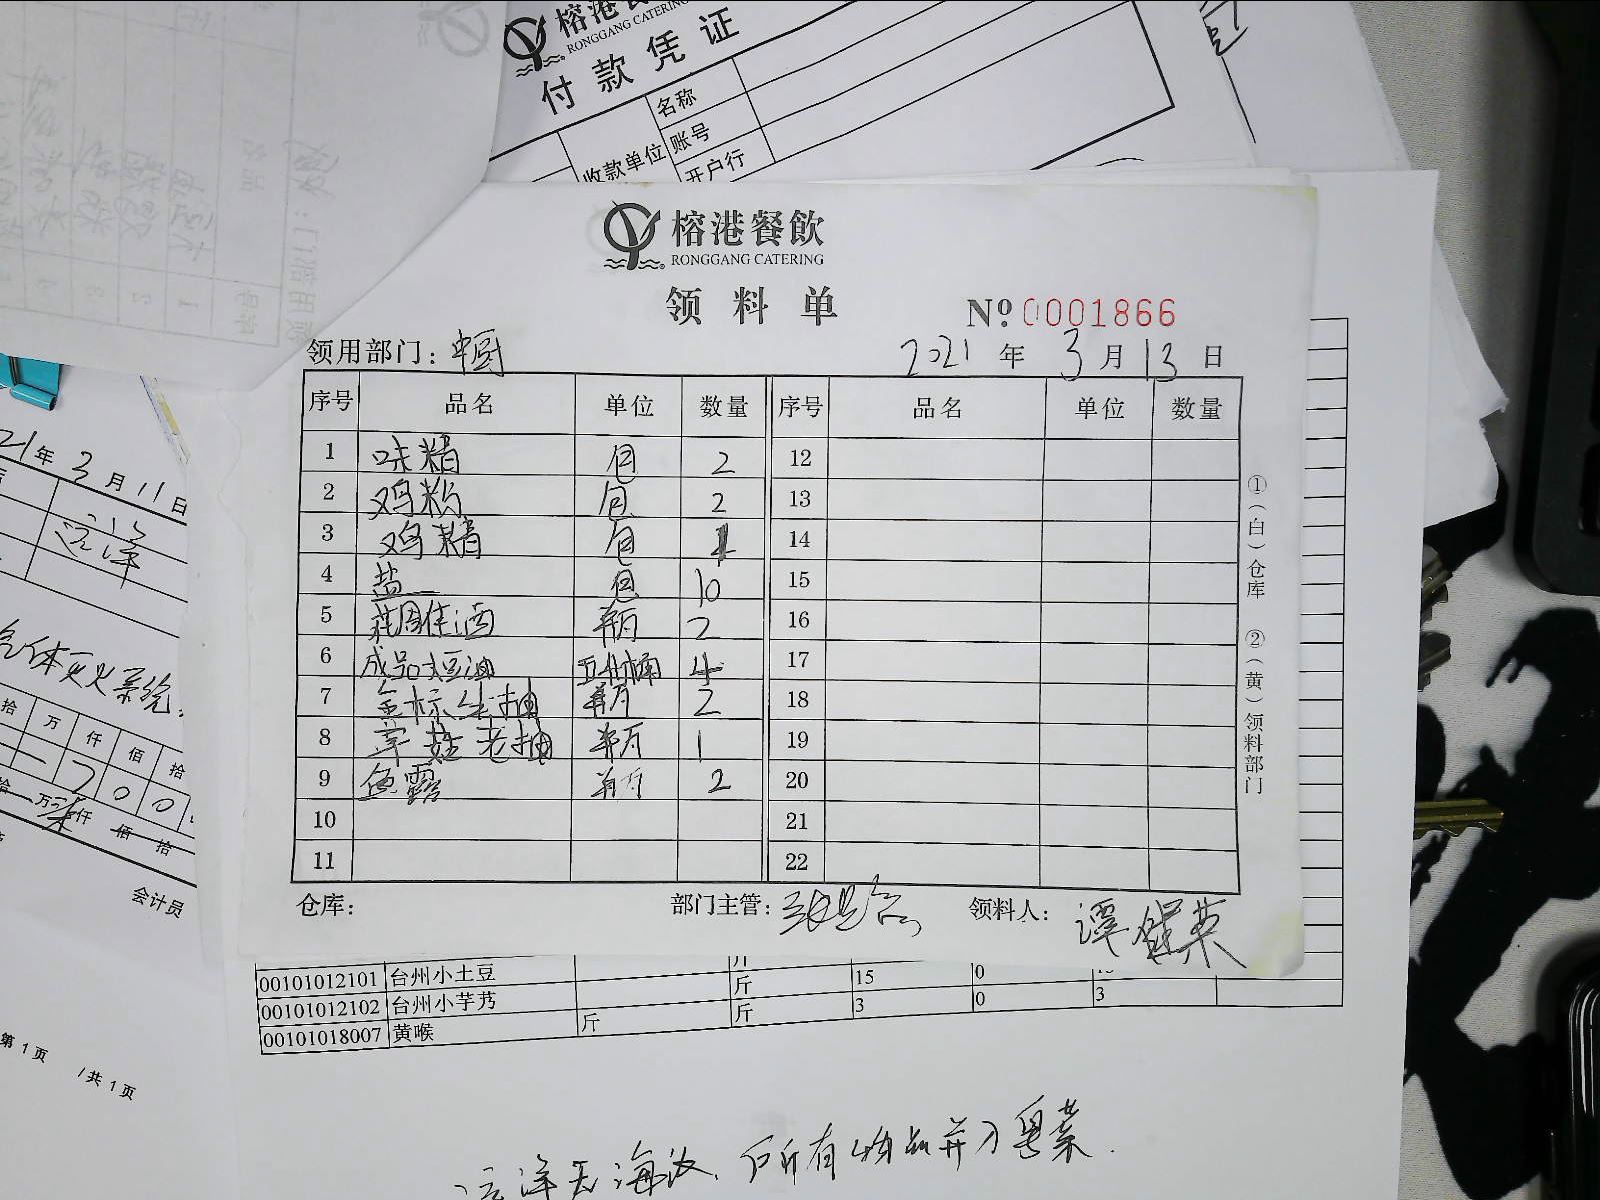 榕港餐
RONGGANG CATERING
付款凭证
收款单位
名称
账号
开户行
榕港餐飲
RONGGANG CATERING
领料单 Nº 0001866
领用部门：中厨 2021年3月13日
序号 品名 单位 数量 序号 品名 单位 数量
1 味精 包 2 12
2 鸡粉 包 2 13
3 鸡精 包 1 14
4 盐 包 10 15
5 花雕酒 瓶 2 16
6 成品豉油 桶 4 17
7 金标生抽 瓶 2 18
8 草菇老抽 瓶 1 19
9 鱼露 瓶 2 20
10 21
11 22
①(白)仓库 ②(黄)领料部门
仓库： 部门主管： 领料人：谭健英
21年3月11日
远洋
气体灭火系统.
拾 万 仟 佰 拾
7 0 0
万 仟 佰 拾
会计员
第1页 /共1页
00101012101 台州小土豆 斤 15 0
00101012102 台州小芋艿 斤 3 0 3
00101018007 黄喉 斤
远洋无海波，所有物品并入粤菜.